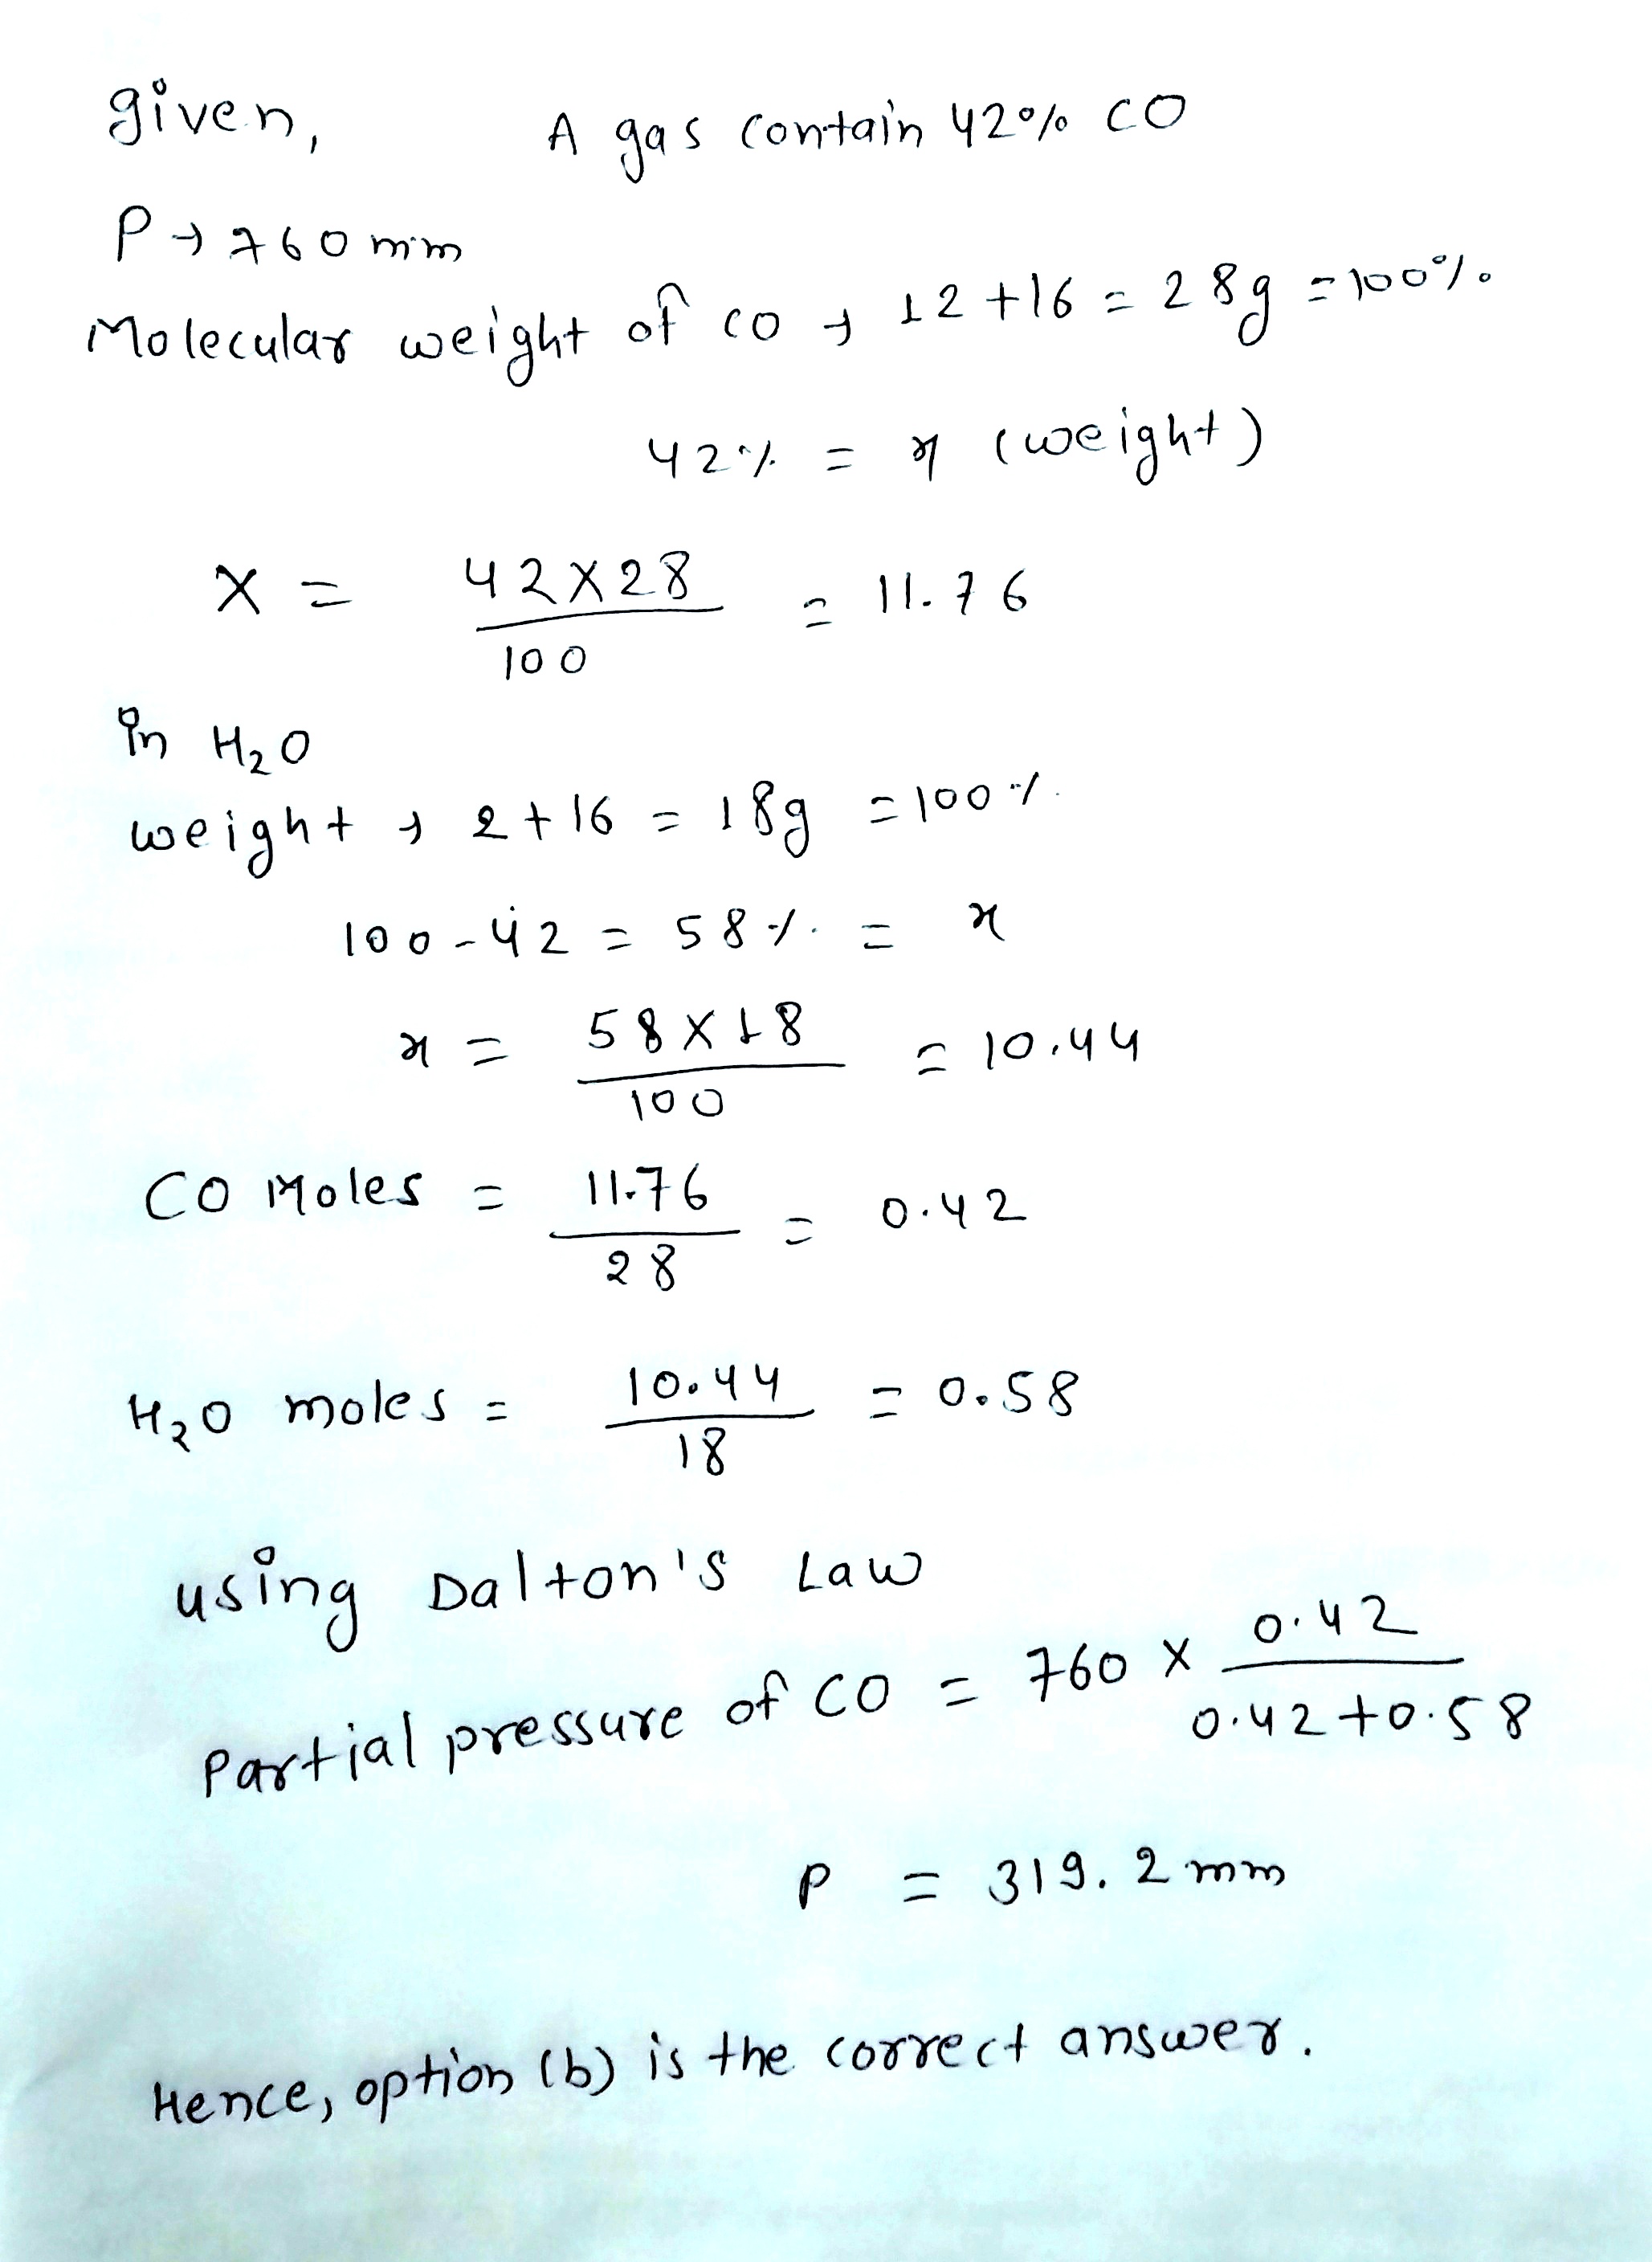 given, A gas contain 42% CO
P → 760 mm
Molecular weight of CO → 12 + 16 = 28g = 100%
42% = x (weight)
X = 42X28 / 100 = 11.76
in H₂O
weight → 2 + 16 = 18g = 100%
100 - 42 = 58% = x
x = 58X18 / 100 = 10.44
CO Moles = 11.76 / 28 = 0.42
H₂O moles = 10.44 / 18 = 0.58
using Dalton's Law
Partial pressure of CO = 760 X 0.42 / 0.42+0.58
P = 319.2 mm
Hence, option (b) is the correct answer.